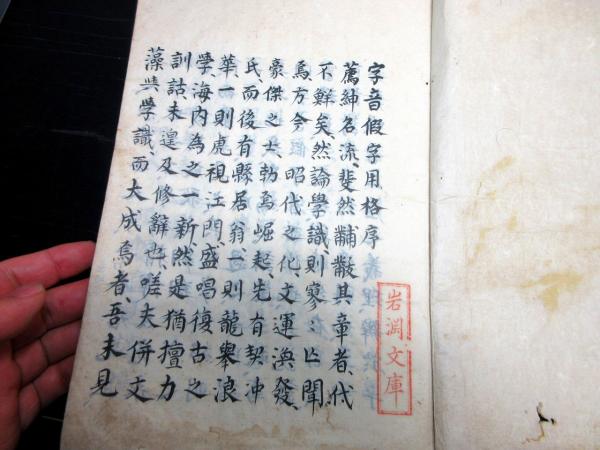 字音假字用格序
薦紳名流、斐然黼黻其章者、代
不鮮矣、然論學識則寥〻匕聞
焉、方今 昭代之化、文運渙發、
豪傑之士、勃焉崛起、先有契冲
氏、而後有縣居翁、一則龍舉浪
華、一則虎視江門、盛唱復古之
學、海内為之一新、然是猶擅力
訓詁、未遑及修辭也、嗟夫併文
藻與學識、而大成焉者、吾未見
岩淵文庫